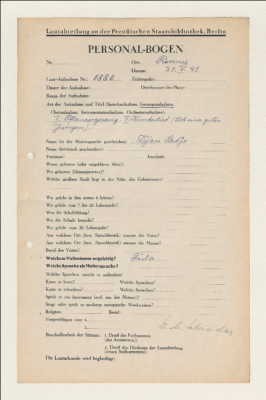 Lautabteilung an der Preußischen Staatsbibliothek, Berlin
PERSONAL-BOGEN
Nr. Ort: Rennes
Datum: 31. V. 41
Laut-Aufnahme Nr.: 1880 Zeitangabe:
Dauer der Aufnahme: Durchmesser der Platte:
Raum der Aufnahme:
Art der Aufnahme und Titel (Sprechaufnahme, Gesangsaufnahme,
Choraufnahme, Instrumentenaufnahme, Orchesteraufnahme):
Name (in der Muttersprache geschrieben):
Name (lateinisch geschrieben):
Vorname: Anschrift:
Wann geboren (oder ungefähres Alter):
Wo geboren (Heimatprovinz):
Welche größere Stadt liegt in der Nähe des Geburtsortes:
Wo gelebt in den ersten 6 Jahren?
Wo gelebt vom 7. bis 20. Lebensjahr?
Was für Schulbildung?
Wo die Schule besucht?
Wo gelebt vom 20. Lebensjahr?
Aus welchem Ort (bzw. Sprachbezirk) stammt der Vater?
Aus welchem Ort (bzw. Sprachbezirk) stammt die Mutter?
Beruf des Vaters?
Welchem Volksstamm angehörig? Fula
Welche Sprache als Muttersprache?
Welche Sprachen spricht er außerdem?
Kann er lesen? Welche Sprachen?
Kann er schreiben? Welche Sprachen?
Spielt er ein Instrument (evtl. aus der Heimat)?
Singt oder spielt er moderne europäische Musikweisen?
Religion: Beruf:
Vorgeschlagen von: 1.
2.
Beschaffenheit der Stimme: 1. Urteil des Fachmannes
(des Assistenten):
2. Urteil des Direktors der Lautabteilung
(seines Stellvertreters):
Die Lauturkunde wird beglaubigt: